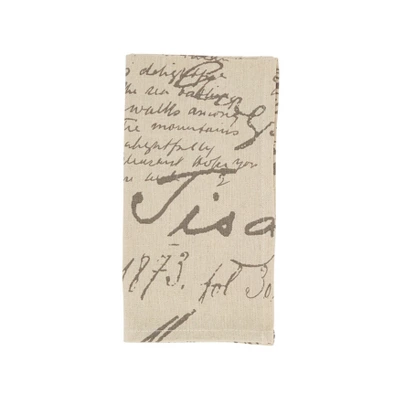 delightful
the sea bathing
walks among
the mountains
delightfully
pleasant hope you
Tisa
1873. fol 30